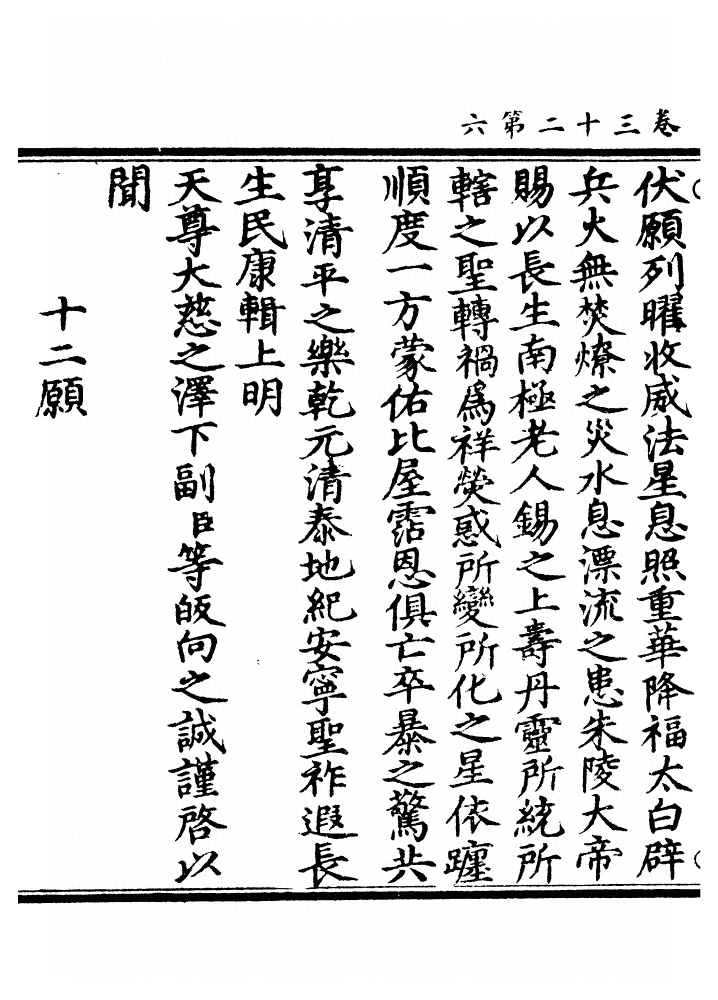 卷三十二第六
伏願列曜收威法星息照重華降福太白辟
兵火無焚燎之災水息漂流之患朱陵大帝
賜以長生南極老人錫之上壽丹靈所統所
轄之聖轉禍爲祥熒惑所變所化之星依躔
順度一方蒙佑比屋霑恩俱亡卒暴之驚共
享清平之樂乾元清泰地紀安寧聖祚遐長
生民康輯上明
天尊大慈之澤下副臣等皈向之誠謹啓以
聞
十二願